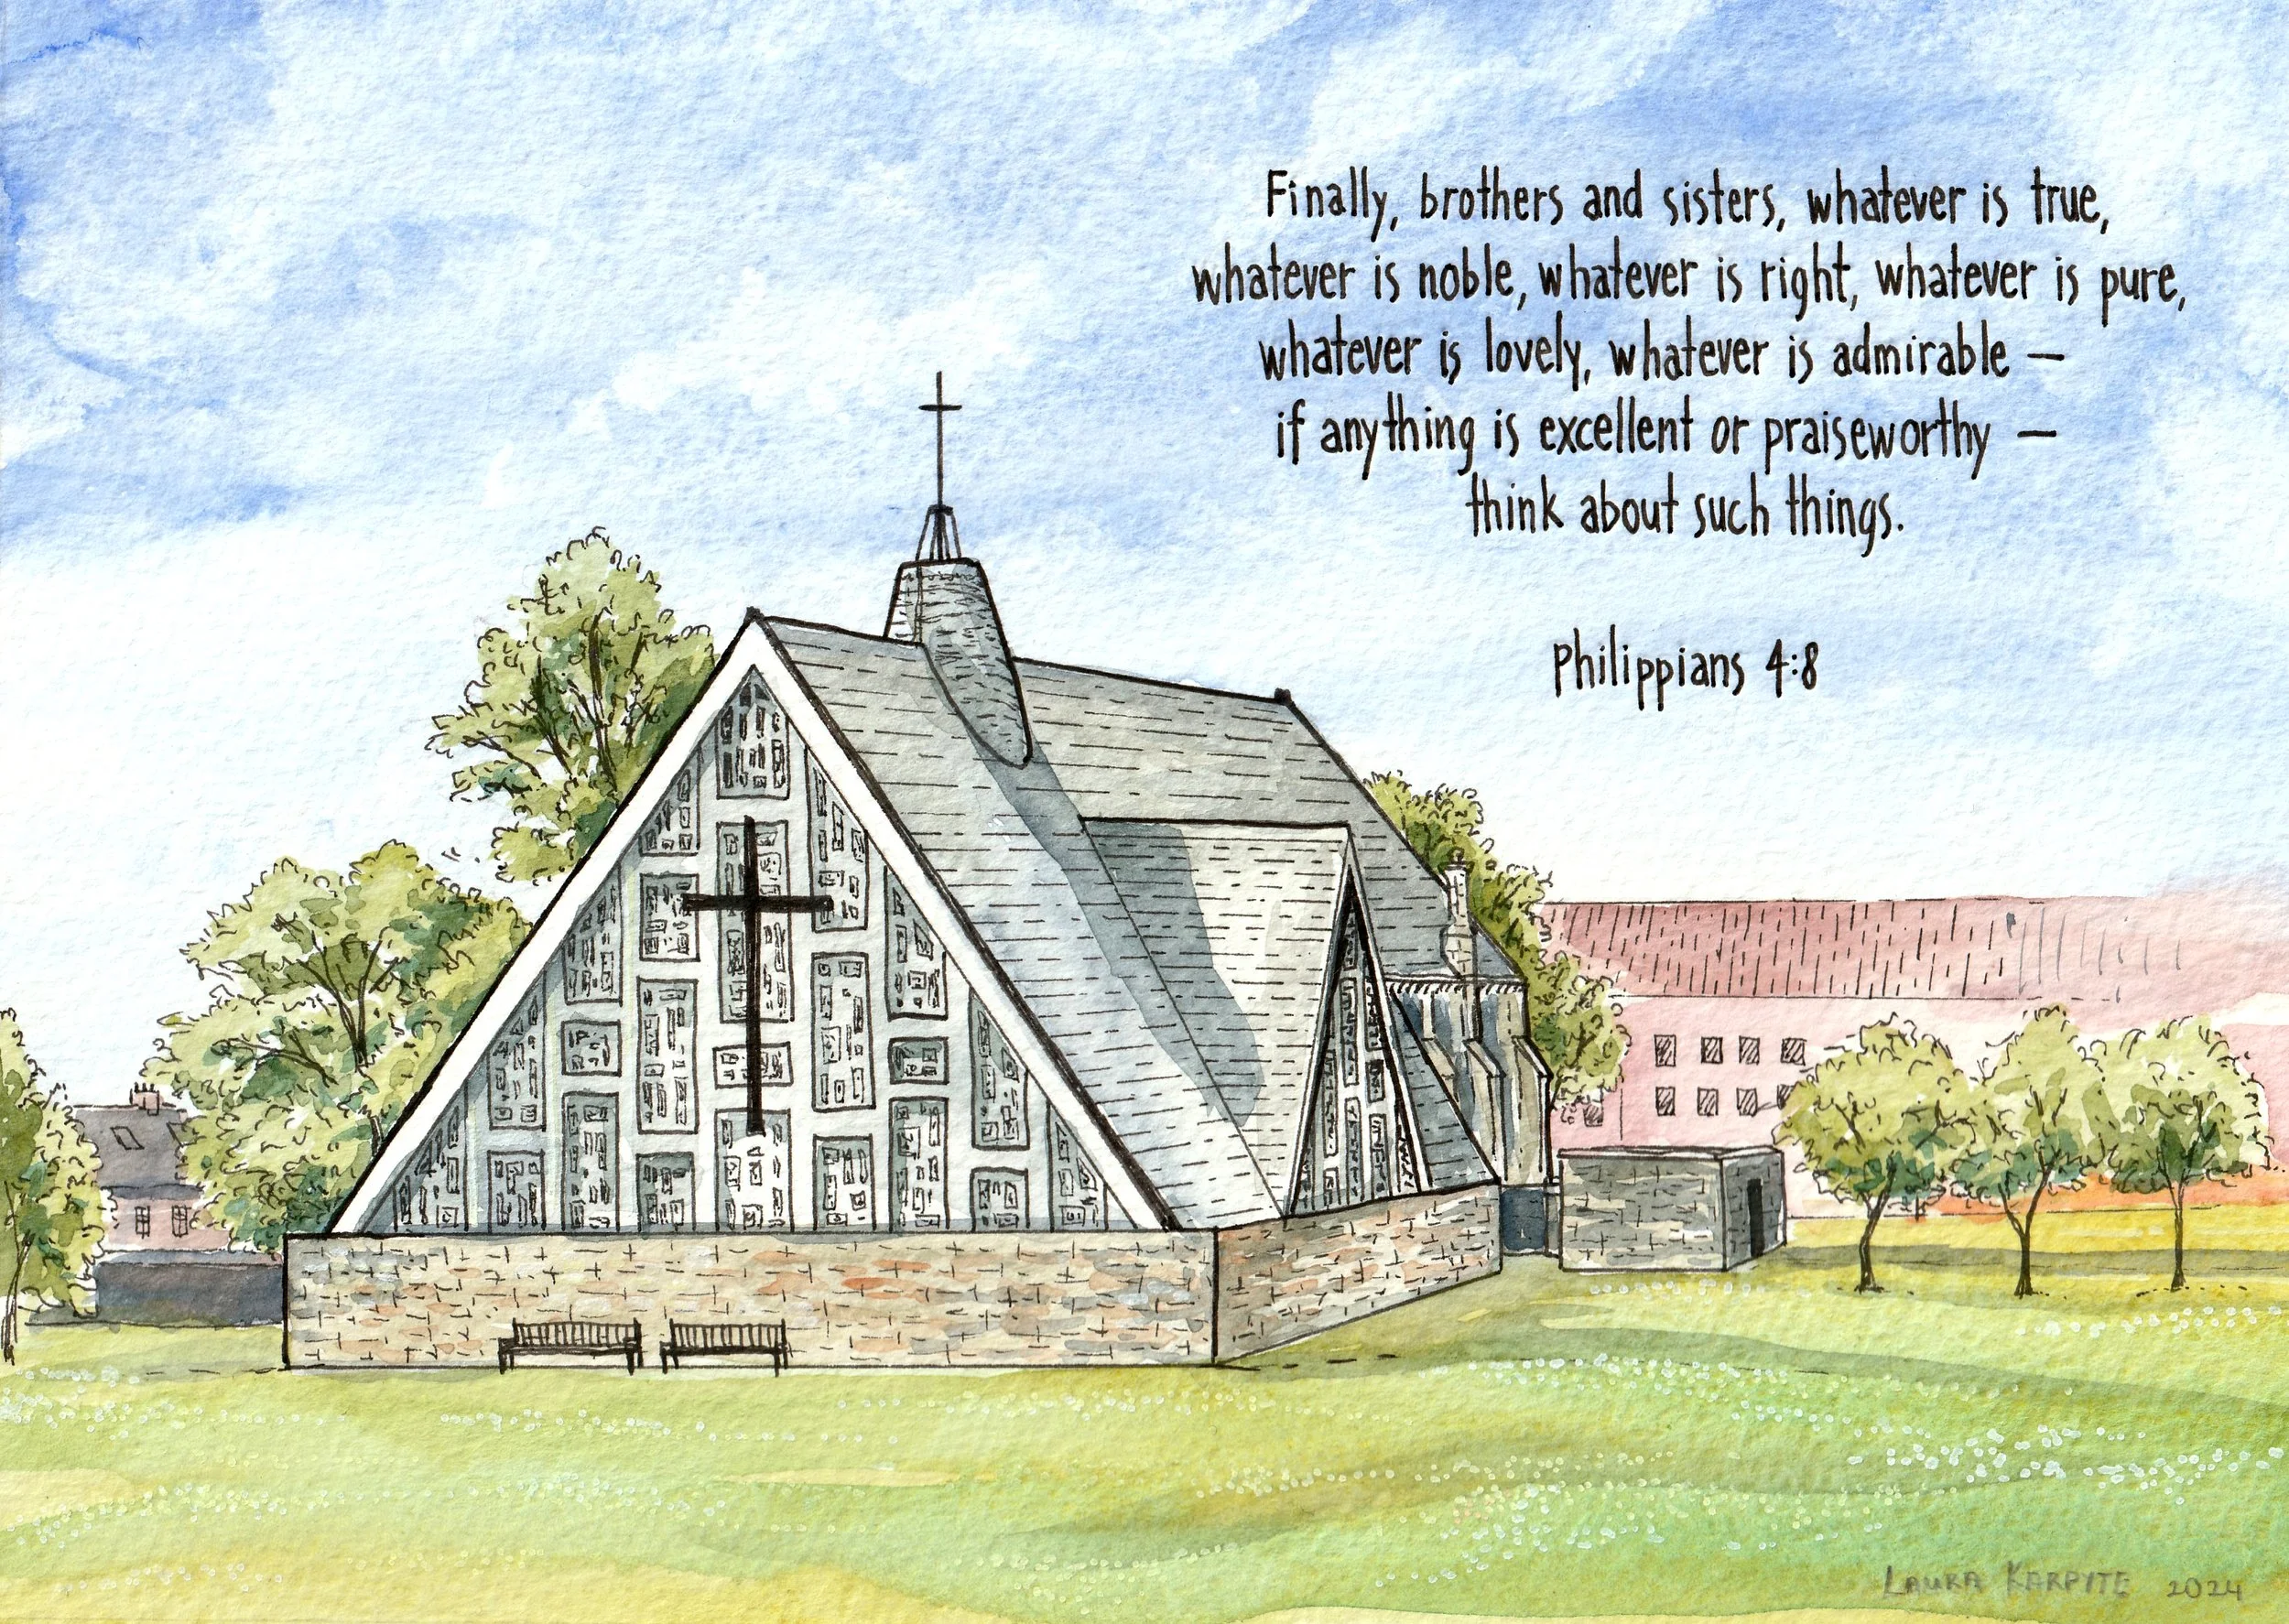 Finally, brothers and sisters, whatever is true,
whatever is noble, whatever is right, whatever is pure,
whatever is lovely, whatever is admirable —
if anything is excellent or praiseworthy —
think about such things.
Philippians 4:8
LAURA KARPYTE 2024